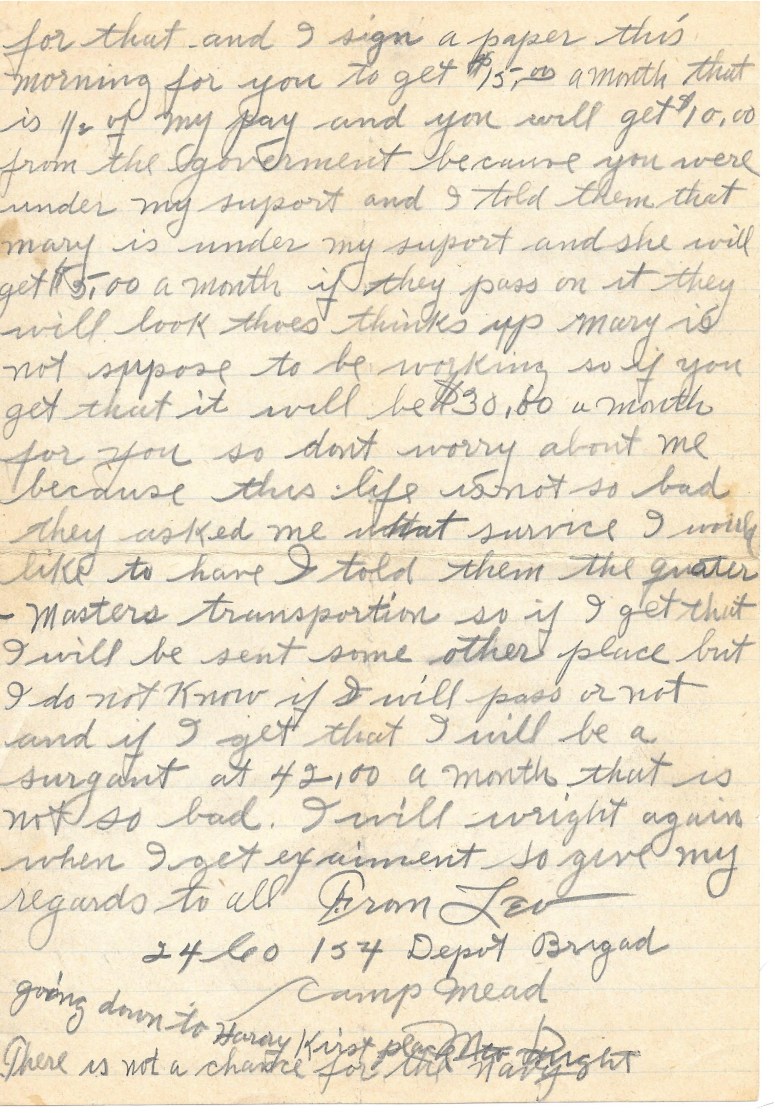 for that and I sign a paper this
morning for you to get $15,00 a month that
is 1/2 of my pay and you will get $10,00
from the goverment because you were
under my suport and I told them that
mary is under my suport and she will
get $5,00 a month if they pass on it they
will look thoes thinks up Mary is
not suppose to be working so if you
get that it will be $30,00 a month
for you so dont worry about me
because this life is not so bad
they asked me what survice I would
like to have I told them the quater
- Masters transportion so if I get that
I will be sent some other place but
I do not Know if I will pass or not
and if I get that I will be a
surgant at 42,00 a month that is
not so bad. I will wright again
when I get exaiment so give my
regards to all From Leo
24 Co 154 Depot Brigad
Camp Mead
going down to Harry Kirst place
There is not a chance for the navy